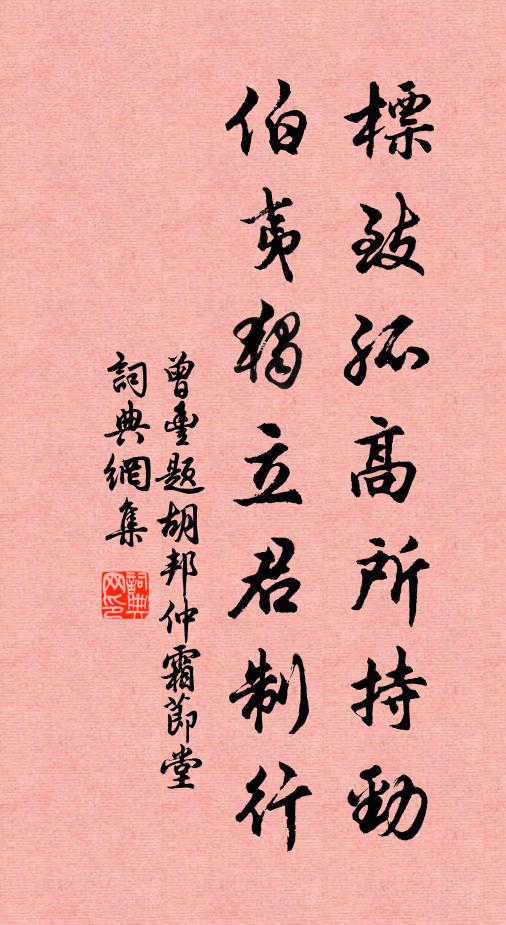 標致孤高所持勁
伯夷獨立君制行
曾豊題胡邦仲霜節堂
詞典網集
詞典网印